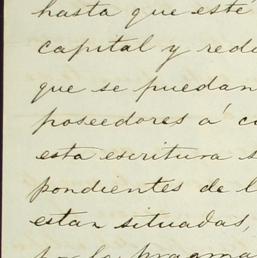 hasta que esté
capital y redu
que se puedan
poseedores á co
esta escritura s
pondientes de l
estan situadas,
por la pragma